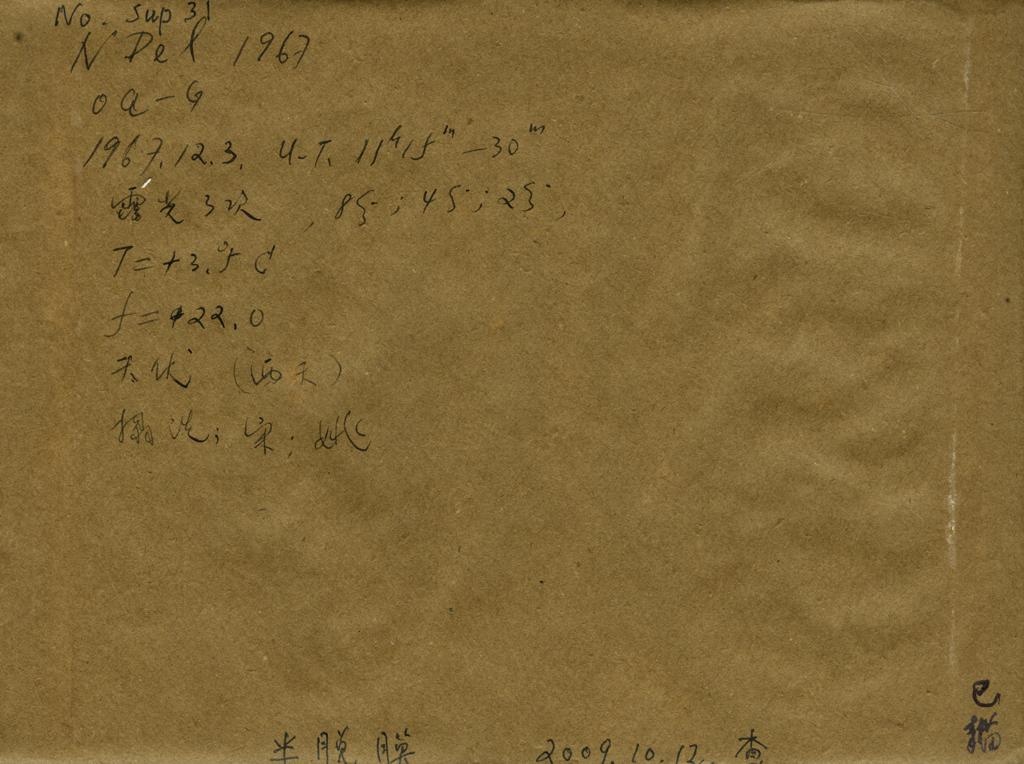 No. Sup 31
N Del 1967
Oa-G
1967.12.3. U.T. 11h15m-30m
露光3次, 8分; 4分; 2分,
T=+3.°5 C
f=422.0
天优 (两天)
摄洗: 宋; 姚
半脱膜 2009.10.12. 查
已
描